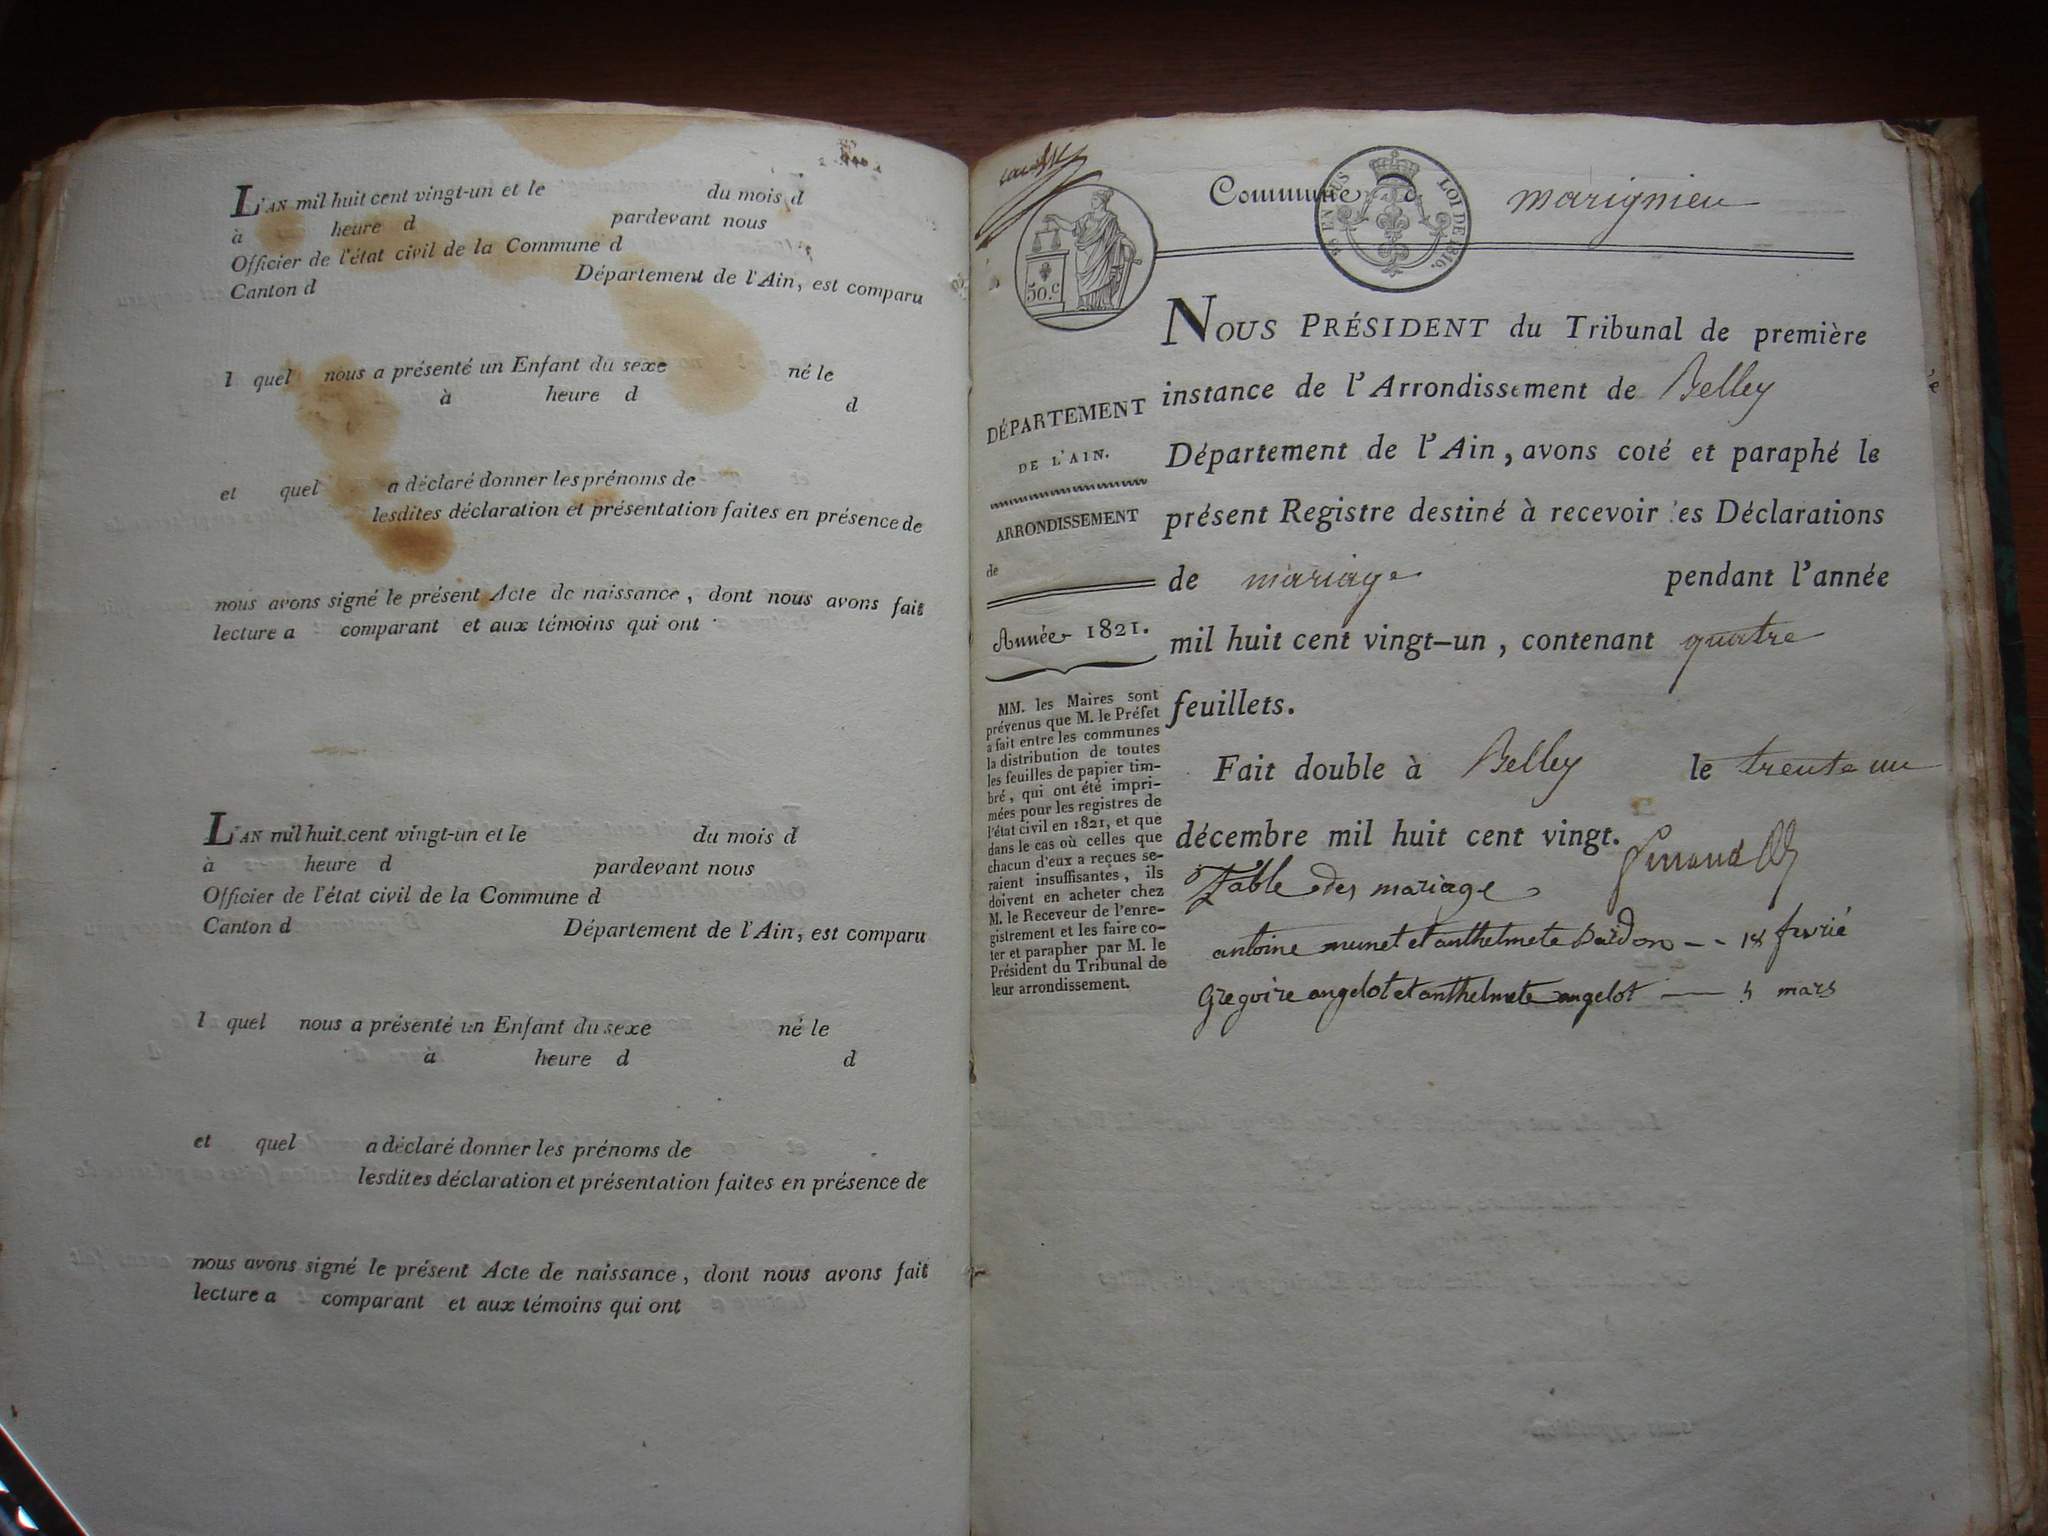 L'AN mil huit cent vingt-un et le du mois d
à heure d pardevant nous
Officier de l'état civil de la Commune d
Canton d Département de l'Ain, est comparu
l quel nous a présenté un Enfant du sexe né le
à heure d d
et quel a déclaré donner les prénoms de
lesdites déclaration et présentation faites en présence de
nous avons signé le présent Acte de naissance, dont nous avons fait
lecture a comparant et aux témoins qui ont
L'AN mil huit cent vingt-un et le du mois d
à heure d pardevant nous
Officier de l'état civil de la Commune d
Canton d Département de l'Ain, est comparu
l quel nous a présenté un Enfant du sexe né le
à heure d d
et quel a déclaré donner les prénoms de
lesdites déclaration et présentation faites en présence de
nous avons signé le présent Acte de naissance, dont nous avons fait
lecture a comparant et aux témoins qui ont
Commune d marignieu
EN SUS
LOI DE 1816.
50.c
DÉPARTEMENT
DE L'AIN.
ARRONDISSEMENT
de
Année 1821.
MM. les Maires sont
prévenus que M. le Préfet
a fait entre les communes
la distribution de toutes
les feuilles de papier tim-
bré, qui ont été impri-
mées pour les registres de
l'état civil en 1821, et que
dans le cas où celles que
chacun d'eux a reçues se-
raient insuffisantes, ils
doivent en acheter chez
M. le Receveur de l'enre-
gistrement et les faire co-
ter et parapher par M. le
Président du Tribunal de
leur arrondissement.
NOUS PRÉSIDENT du Tribunal de première
instance de l'Arrondissement de Belley
Département de l'Ain, avons coté et paraphé le
présent Registre destiné à recevoir les Déclarations
de mariage pendant l'année
mil huit cent vingt-un, contenant quatre
feuillets.
Fait double à Belley le trente un
décembre mil huit cent vingt.
Table des mariage
antoine munet et anthelmete Bardon -- 18 fevrié
Gregoire angelot et anthelmete angelot — 5 mars